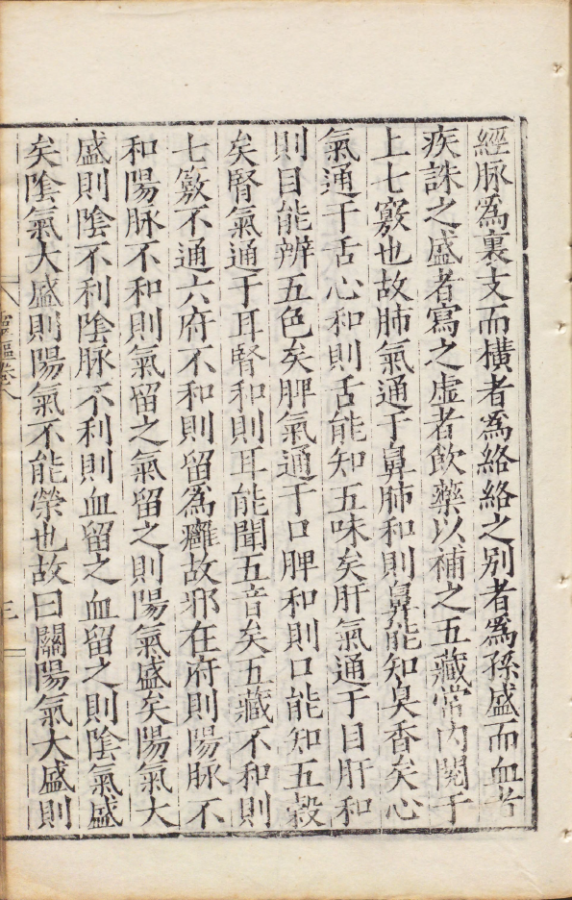 經脉爲裏支而橫者爲絡絡之别者爲孫盛而血者
疾誅之盛者寫之虛者飲藥以補之五藏常内閱于
上七竅也故肺氣通于鼻肺和則鼻能知臭香矣心
氣通于舌心和則舌能知五味矣肝氣通于目肝和
則目能辨五色矣脾氣通于口脾和則口能知五穀
矣腎氣通于耳腎和則耳能聞五音矣五藏不和則
七竅不通六府不和則留爲癰故邪在府則陽脉不
和陽脉不和則氣留之氣留之則陽氣盛矣陽氣大
盛則陰不利陰脉不利則血留之血留之則陰氣盛
矣陰氣大盛則陽氣不能榮也故曰關陽氣大盛則
靈樞卷八
三